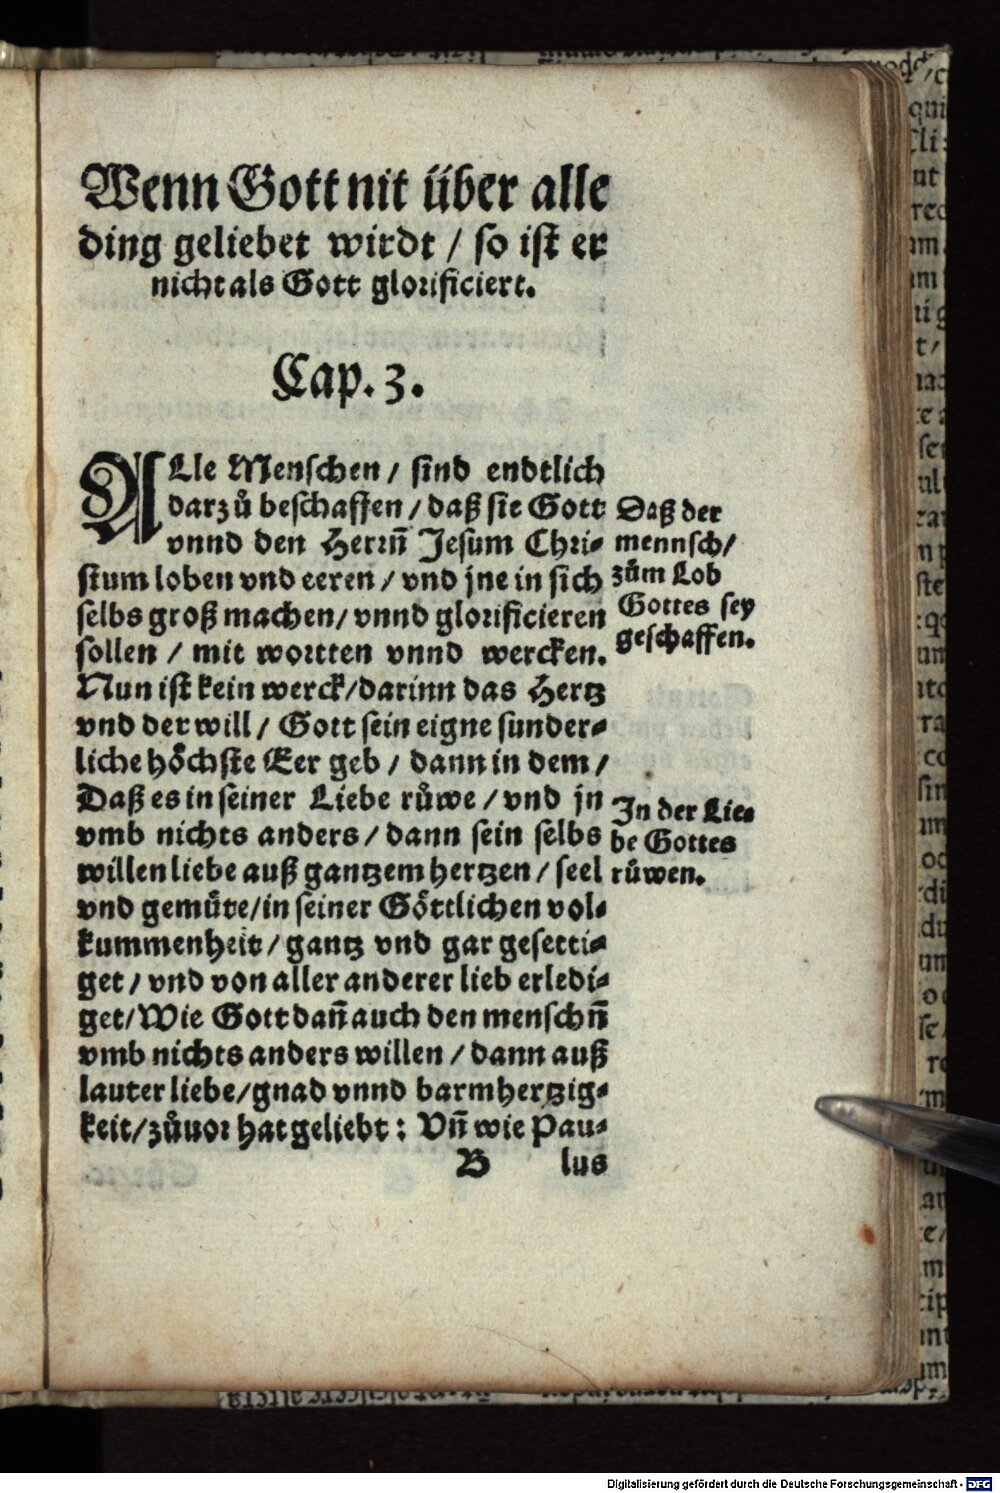 Wenn Gott nit über alle
ding geliebet wirdt / so ist er
nicht als Gott glorificiert.
Cap. 3.
ALle Menschen / sind endtlich
darzů beschaffen / daß sie Gott
vnnd den Herrn̄ Jesum Chri-
stum loben vnd eeren / vnd jne in sich
selbs groß machen / vnnd glorificieren
sollen / mit wortten vnnd wercken.
Nun ist kein werck / darinn das Hertz
vnd der will / Gott sein eigne sunder-
liche hoͤchste Eer geb / dann in dem /
Daß es in seiner Liebe růwe / vnd jn
vmb nichts anders / dann sein selbs
willen liebe auß gantzem hertzen / seel
vnd gemüte / in seiner Goͤttlichen vol-
kummenheit / gantz vnd gar gesetti-
get / vnd von aller anderer lieb erledi-
get / Wie Gott dañ auch den menschn̄
vmb nichts anders willen / dann auß
lauter liebe / gnad vnnd barmhertzig-
keit / zůuor hat geliebt : Vn̄ wie Pau-
B lus
Daß der
mennsch /
zům Lob
Gottes sey
geschaffen.
In der Lie-
be Gottes
růwen.
Digitalisierung gefördert durch die Deutsche Forschungsgemeinschaft - DFG